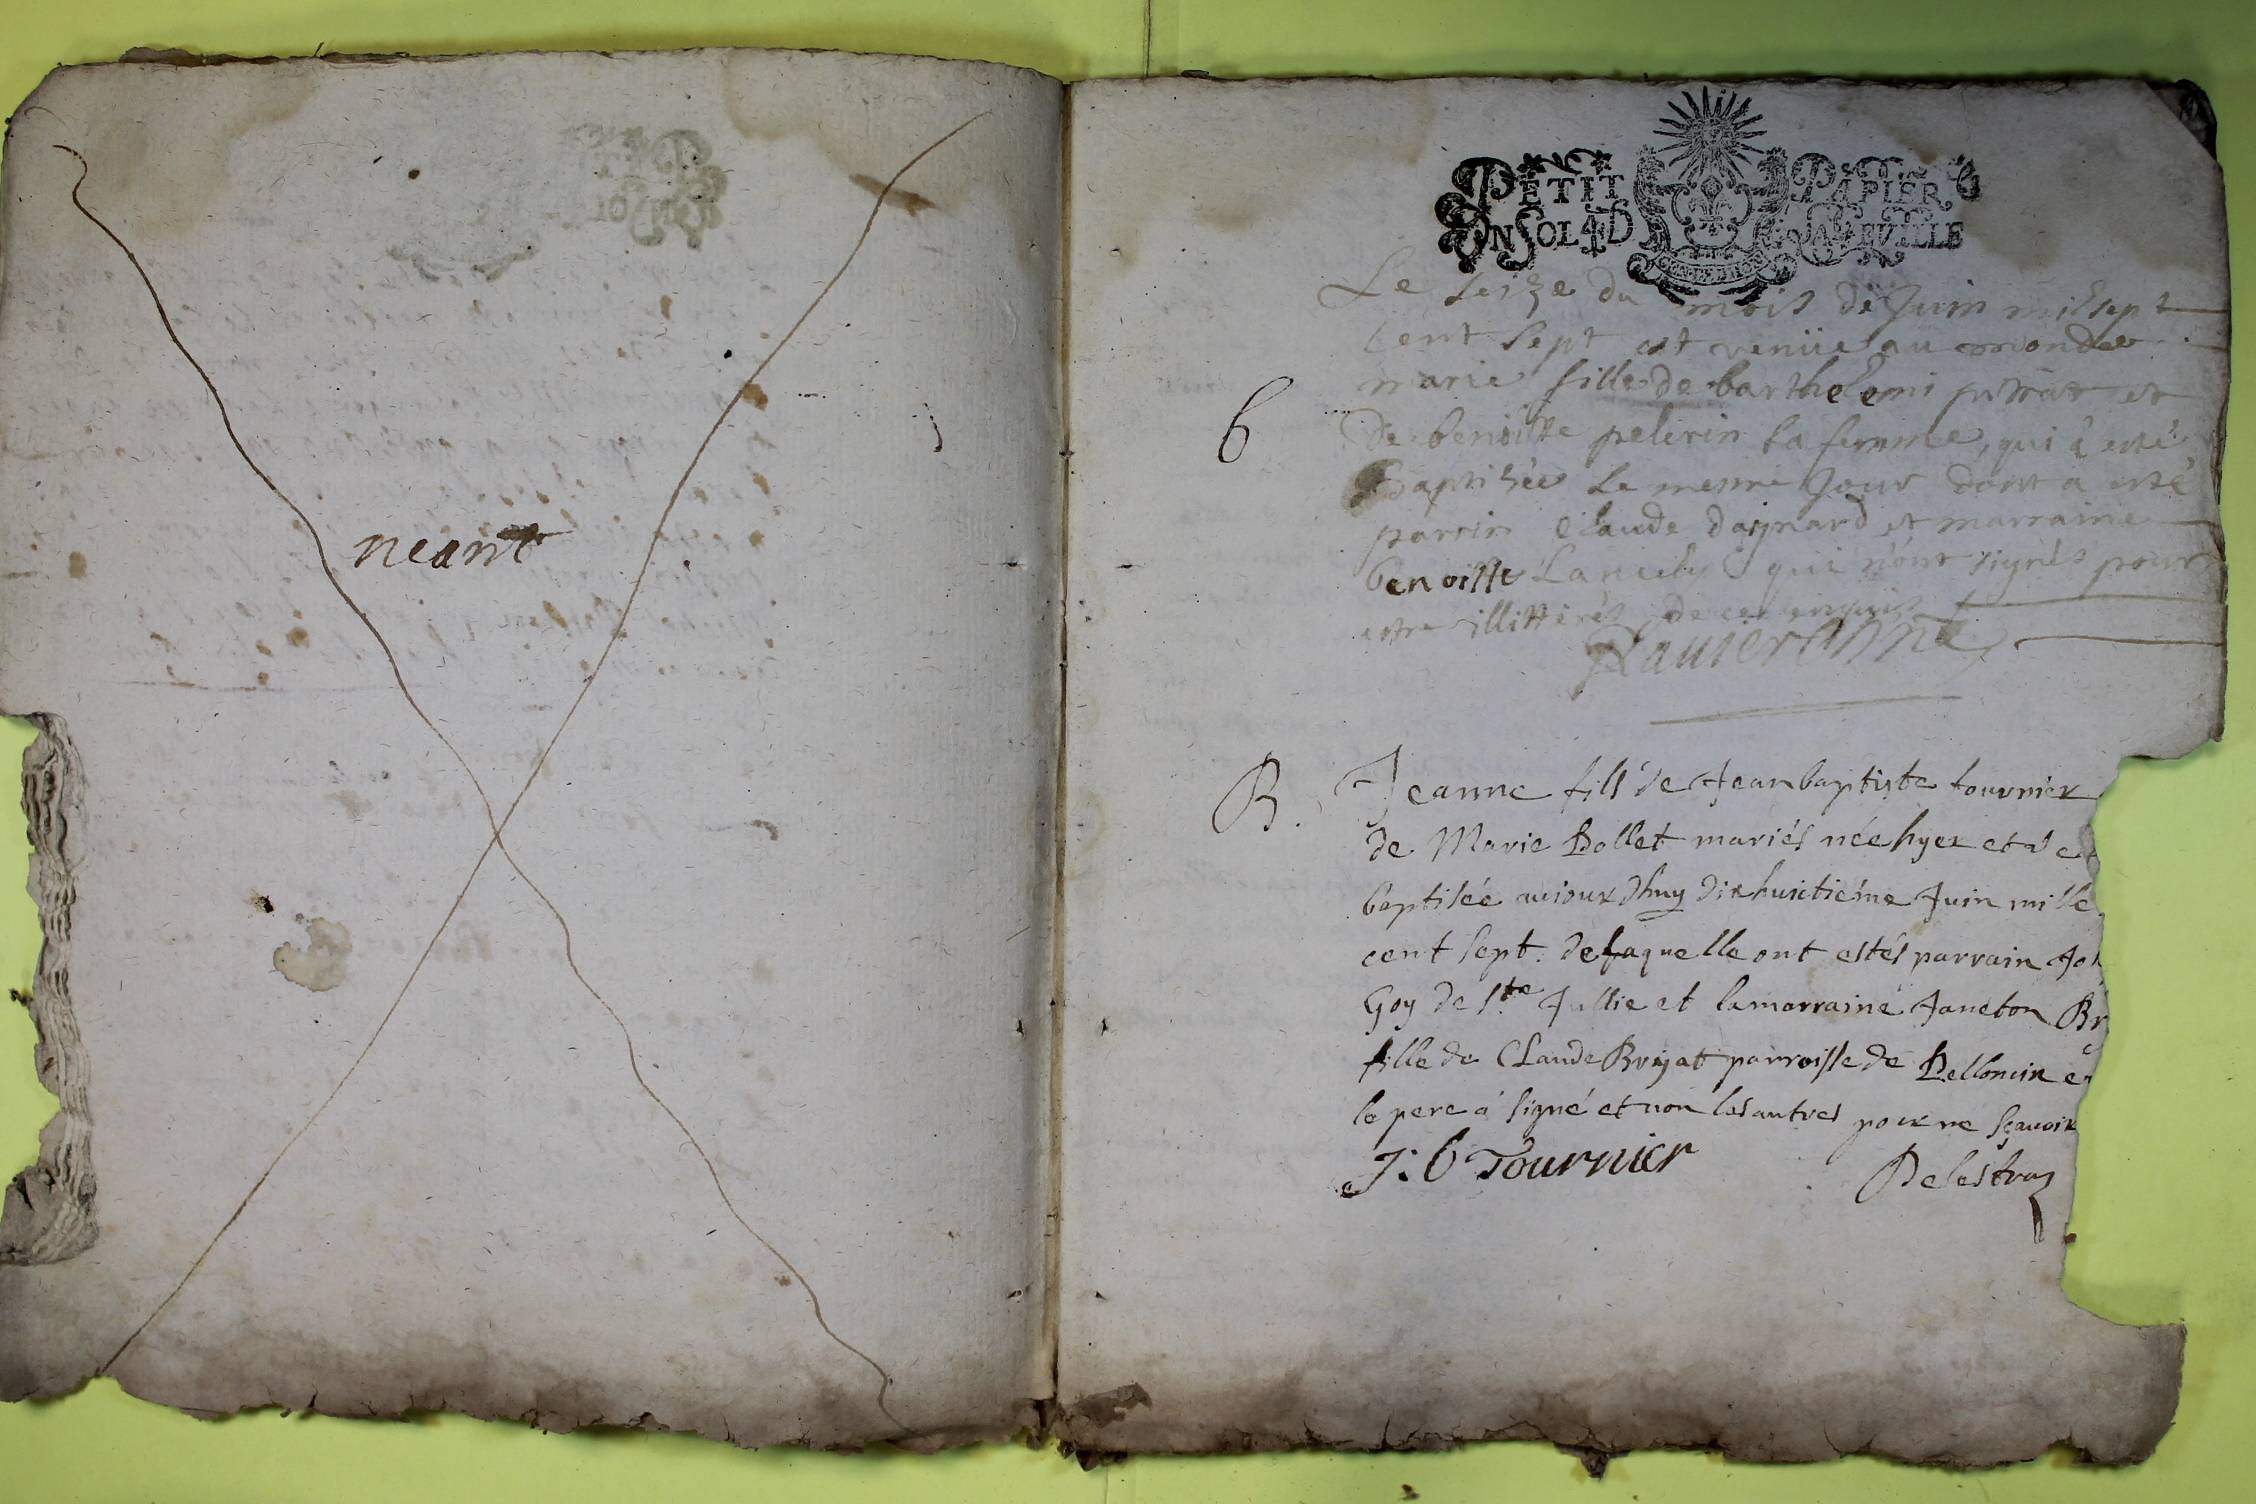 neant
PETIT PAPIER
UN SOL 4 D LA FEUILLE
Le seize du mois de Juin mil sept
cent sept est venüe au monde
B marie fille de barthelemi et
de benoitte pelerin sa femme, qui â esté
baptisée le mesme Jour dont a esté
parrin Claude et marraine
benoitte qui n'ont signés pour
estre illitterés de ce enquis

B. Jeanne fill de Jean baptiste tournier
de Marie Bollet mariés née hyer et
baptisée auiourdhuy dixhuictième Juin mille
cent sept. de laquelle ont estés parrain
Goy de Ste Jullie et la marraine Janeton Br
fille de Claude Bryat parroisse de
le pere a signé et non les autres pour ne sçauoir
J: b Tournier Delestraz